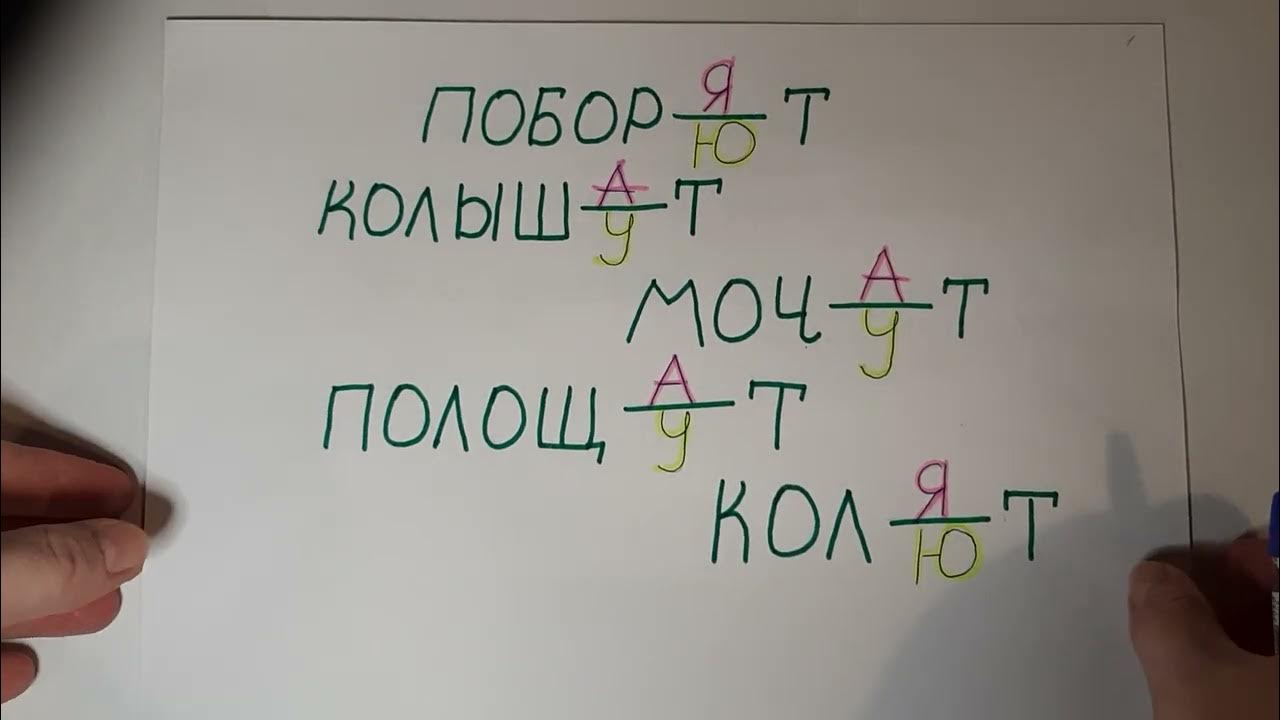 ПОБОР Я/Ю Т
КОЛЫШ А/У Т
МОЧ А/У Т
ПОЛОЩ А/У Т
КОЛ Я/Ю Т